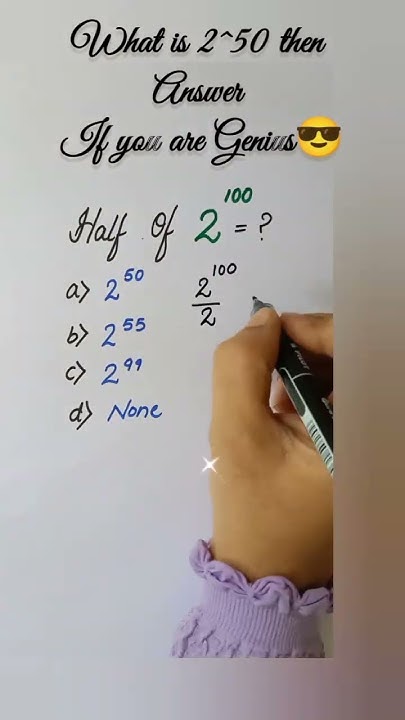 What is 2^50 then
Answer
If you are Genius😎
Half Of 2^100 = ?
a) 2^50
2^100
2
b) 2^55
c) 2^99
d) None